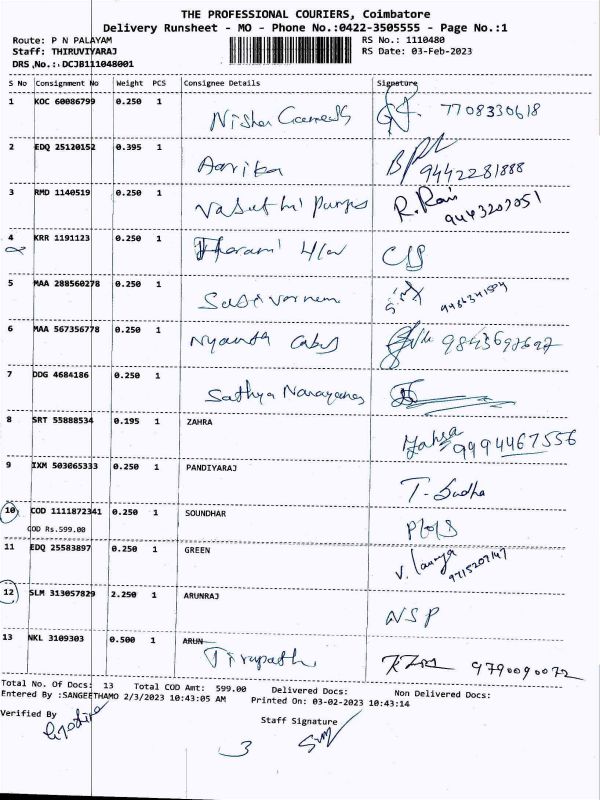 THE PROFESSIONAL COURIERS, Coimbatore
Delivery Runsheet - MO - Phone No.:0422-3505555 - Page No.:1
Route: P N PALAYAM RS No.: 1110480
Staff: THIRUVIYARAJ RS Date: 03-Feb-2023
DRS.No.:.DCJB111048001
S No Consignment No Weight PCS Consignee Details Signature
1 KOC 60086799 0.250 1
7708330618
2 EDQ 25120152 0.395 1
9442281888
3 RMD 1140519 0.250 1
Vasuthi Pumps R.Ravi
4 KRR 1191123 0.250 1
5 MAA 288560278 0.250 1
6 MAA 567356778 0.250 1
7 DDG 4684186 0.250 1
Sathya Narayanan
8 SRT 55888534 0.195 1 ZAHRA
Zahra
9994467556
9 IXM 503065333 0.250 1 PANDIYARAJ
T. Sudha
10 COD 1111872341 0.250 1 SOUNDHAR
COD Rs.599.00
11 EDQ 25583897 0.250 1 GREEN
12 SLM 313057829 2.250 1 ARUNRAJ
NSP
13 NKL 3109303 0.500 1 ARUN
Tirupathi 9790090072
Total No. Of Docs: 13 Total COD Amt: 599.00 Delivered Docs: Non Delivered Docs:
Entered By :SANGEETHAMO 2/3/2023 10:43:05 AM Printed On: 03-02-2023 10:43:14
Verified By Staff Signature
3